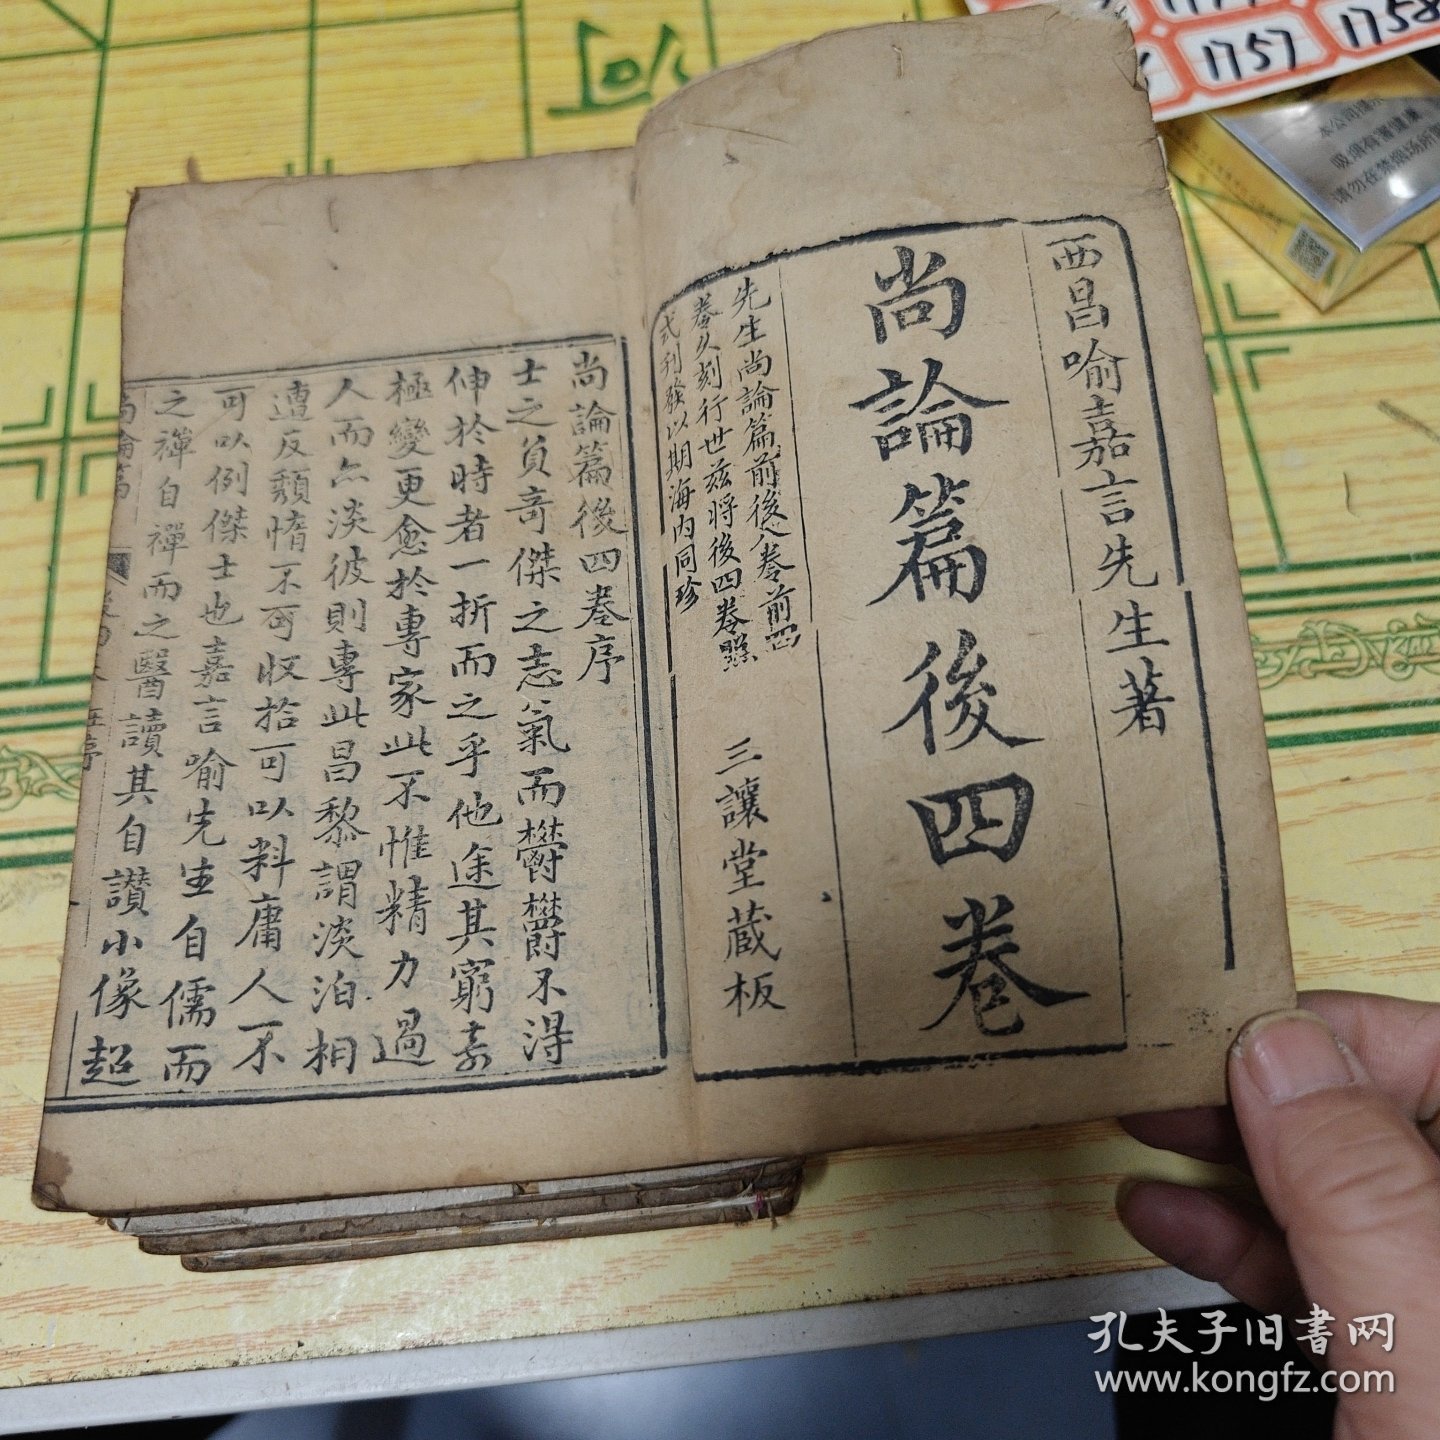 西昌喻嘉言先生著
尚論篇後四卷
先生尚論篇前後八卷前四
卷久刻行世茲將後四卷照
式刋發以期海內同珍
三讓堂藏板
尚論篇後四卷序
士之負奇傑之志氣而欝欝不淂
伸於時者一折而之乎他途其窮
極變更愈於專家此不惟精力過
人而亦淡彼則專此昌黎謂淡泊相
遭反頹惰不可收拾可以料庸人不
可以例傑士也嘉言喻先生自儒而
之禪自禪而之醫讀其自讃小像超
尚論篇
序
1757
1758
本公司提
吸烟有害健康
请勿在禁烟场所
孔夫子旧書网
www.kongfz.com